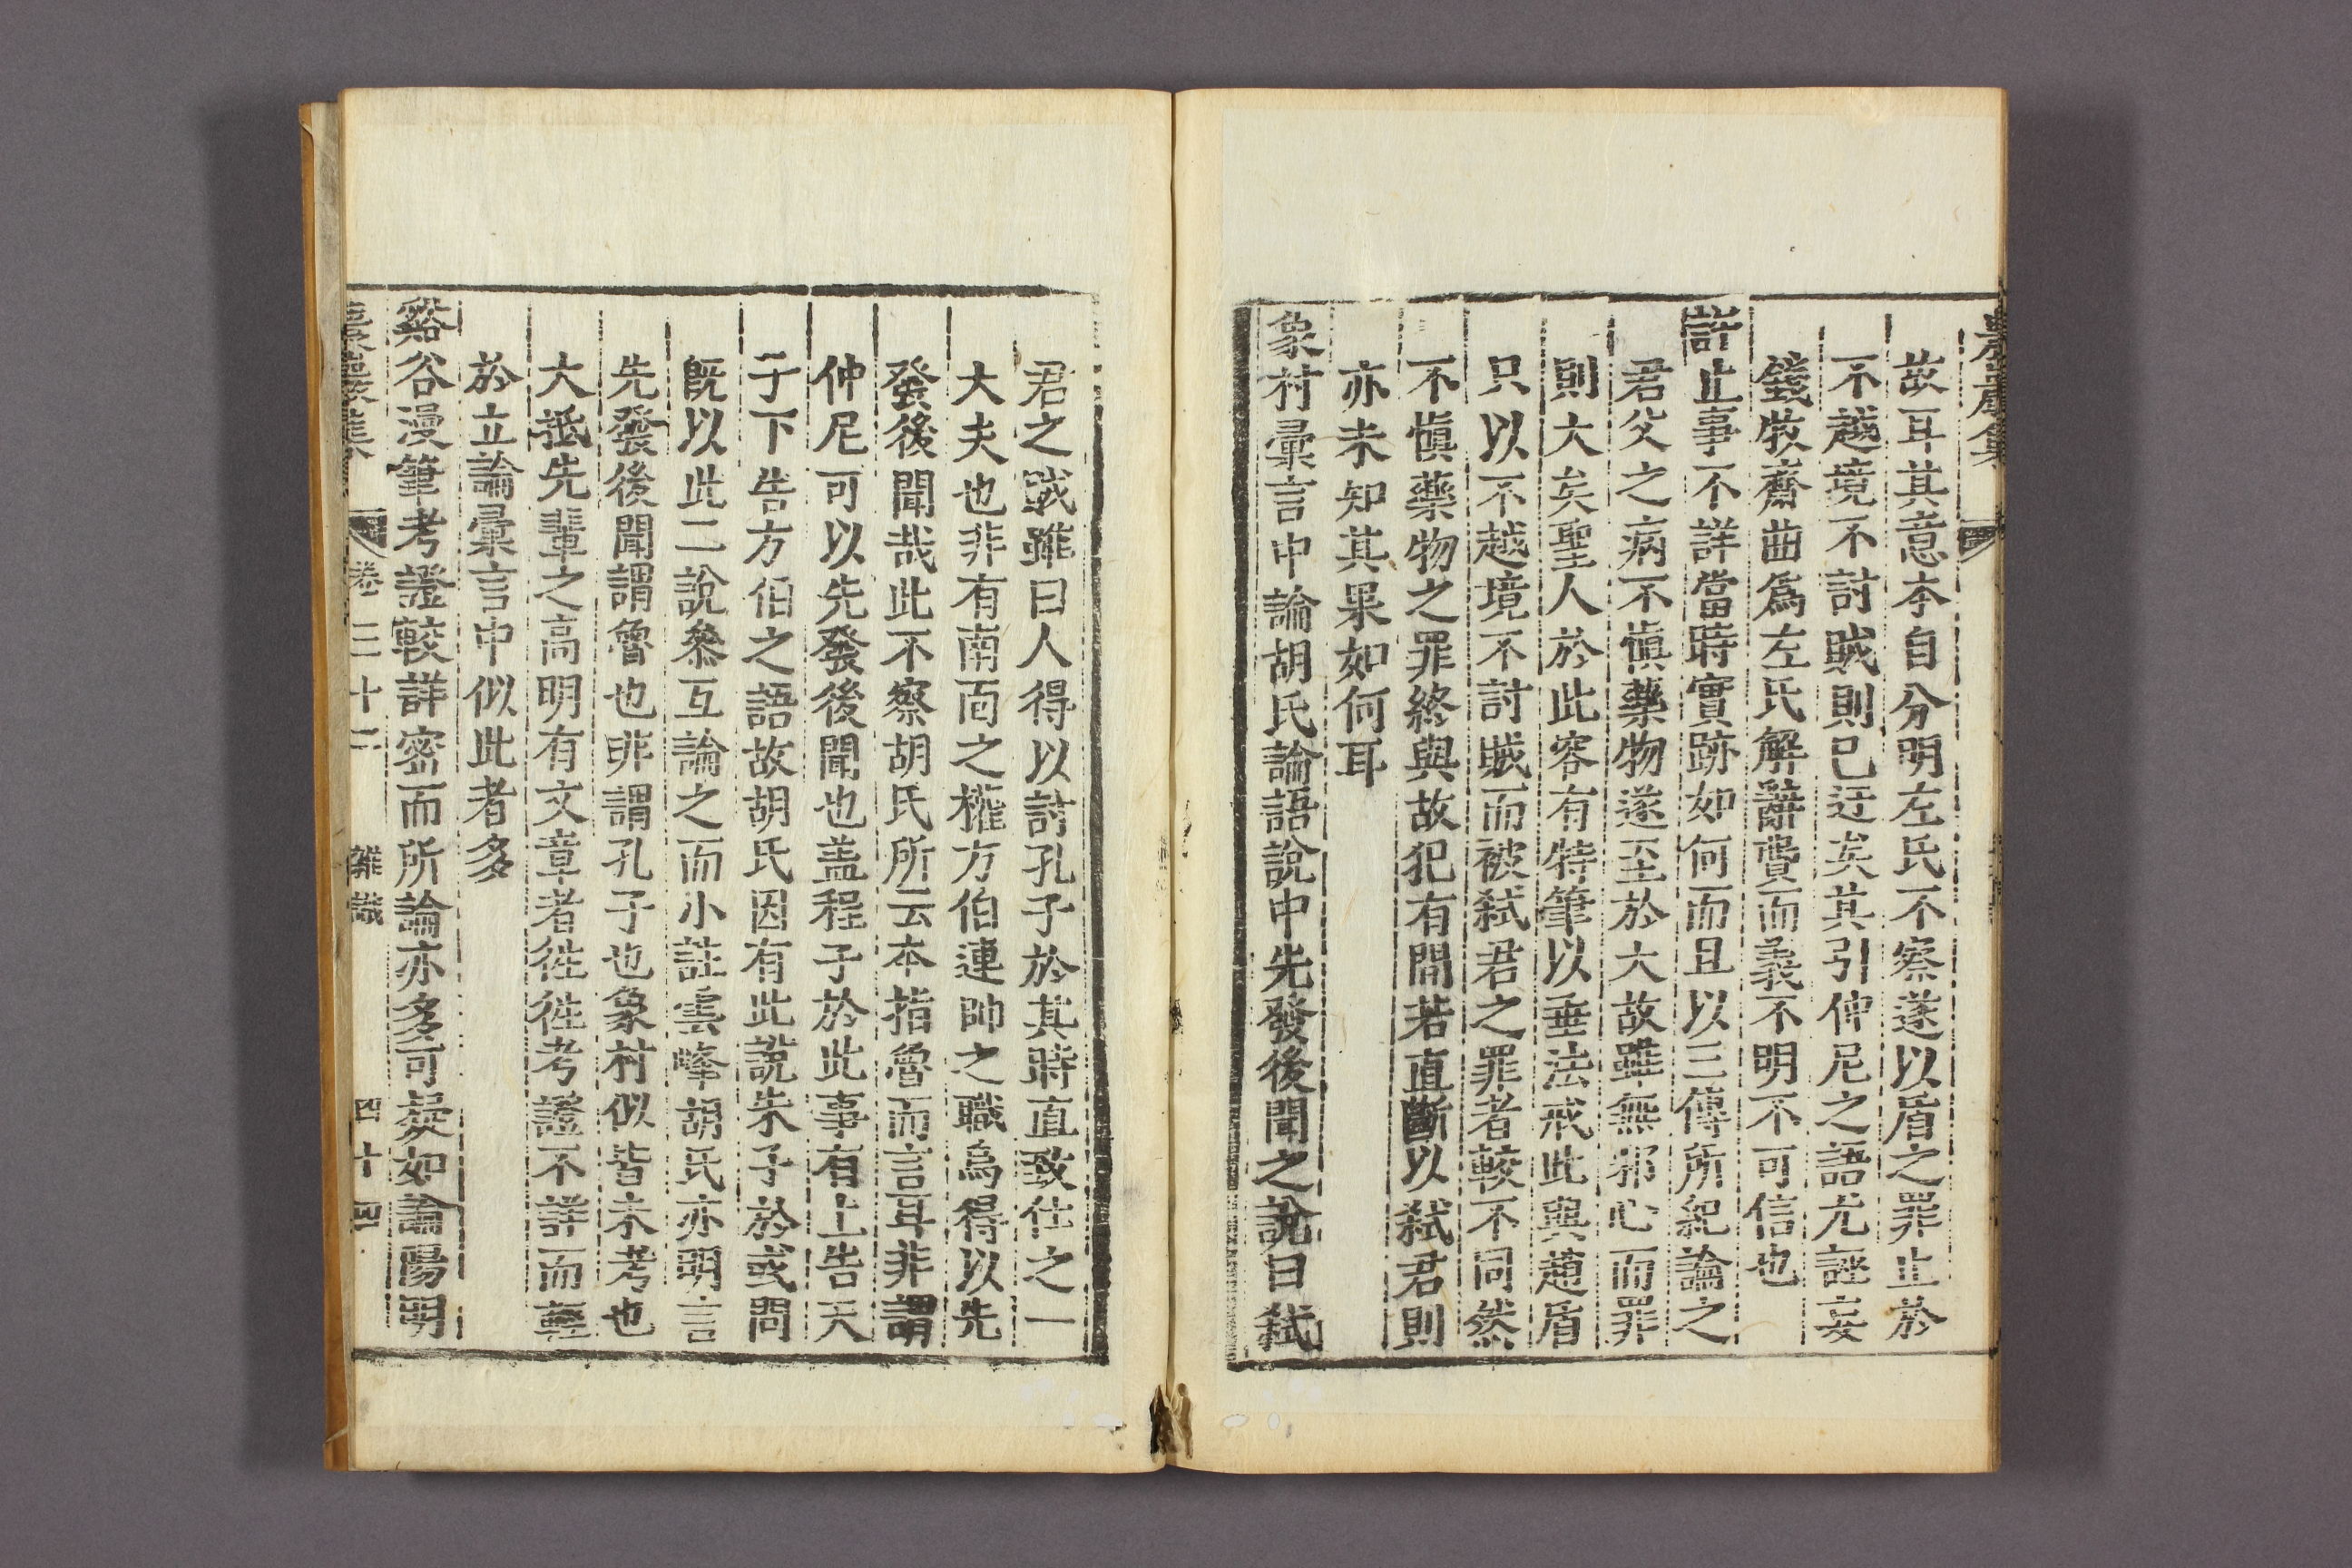 農巖集
故耳其意本自分明左氏不察遂以盾之罪止於
不越境不討賊則已迂矣其引仲尼之語尤誣妄
錢牧齋齒爲左氏解辭費而義不明不可信也
許止事不詳當時實跡如何而且以三傳所紀論之
君父之病不愼藥物遂至於大故雖無邪心而罪
則大矣聖人於此容有特筆以垂法戒此與趙盾
只以不越境不討賊而被弑君之罪者較不同然
不愼藥物之罪終與故犯有間若直斷以弑君則
亦未知其果如何耳
象村彙言中論胡氏論語說中先發後聞之說曰弑
君之賊雖曰人得以討孔子於其時直致仕之一
大夫也非有南面之權方伯連帥之職烏得以先
發後聞哉此不察胡氏所云本指魯而言耳非謂
仲尼可以先發後聞也盖程子於此事有上告天
子下告方伯之語故胡氏因有此說朱子於或問
旣以此二說叅互論之而小註雲峰胡氏亦明言
先發後聞謂魯也非謂孔子也象村似皆未考也
大抵先輩之高明有文章者徃徃考證不詳而輕
於立論彙言中似此者多
谿谷漫筆考證較詳密而所論亦多可疑如論陽明
農巖集 卷三十三 雜識 四十四